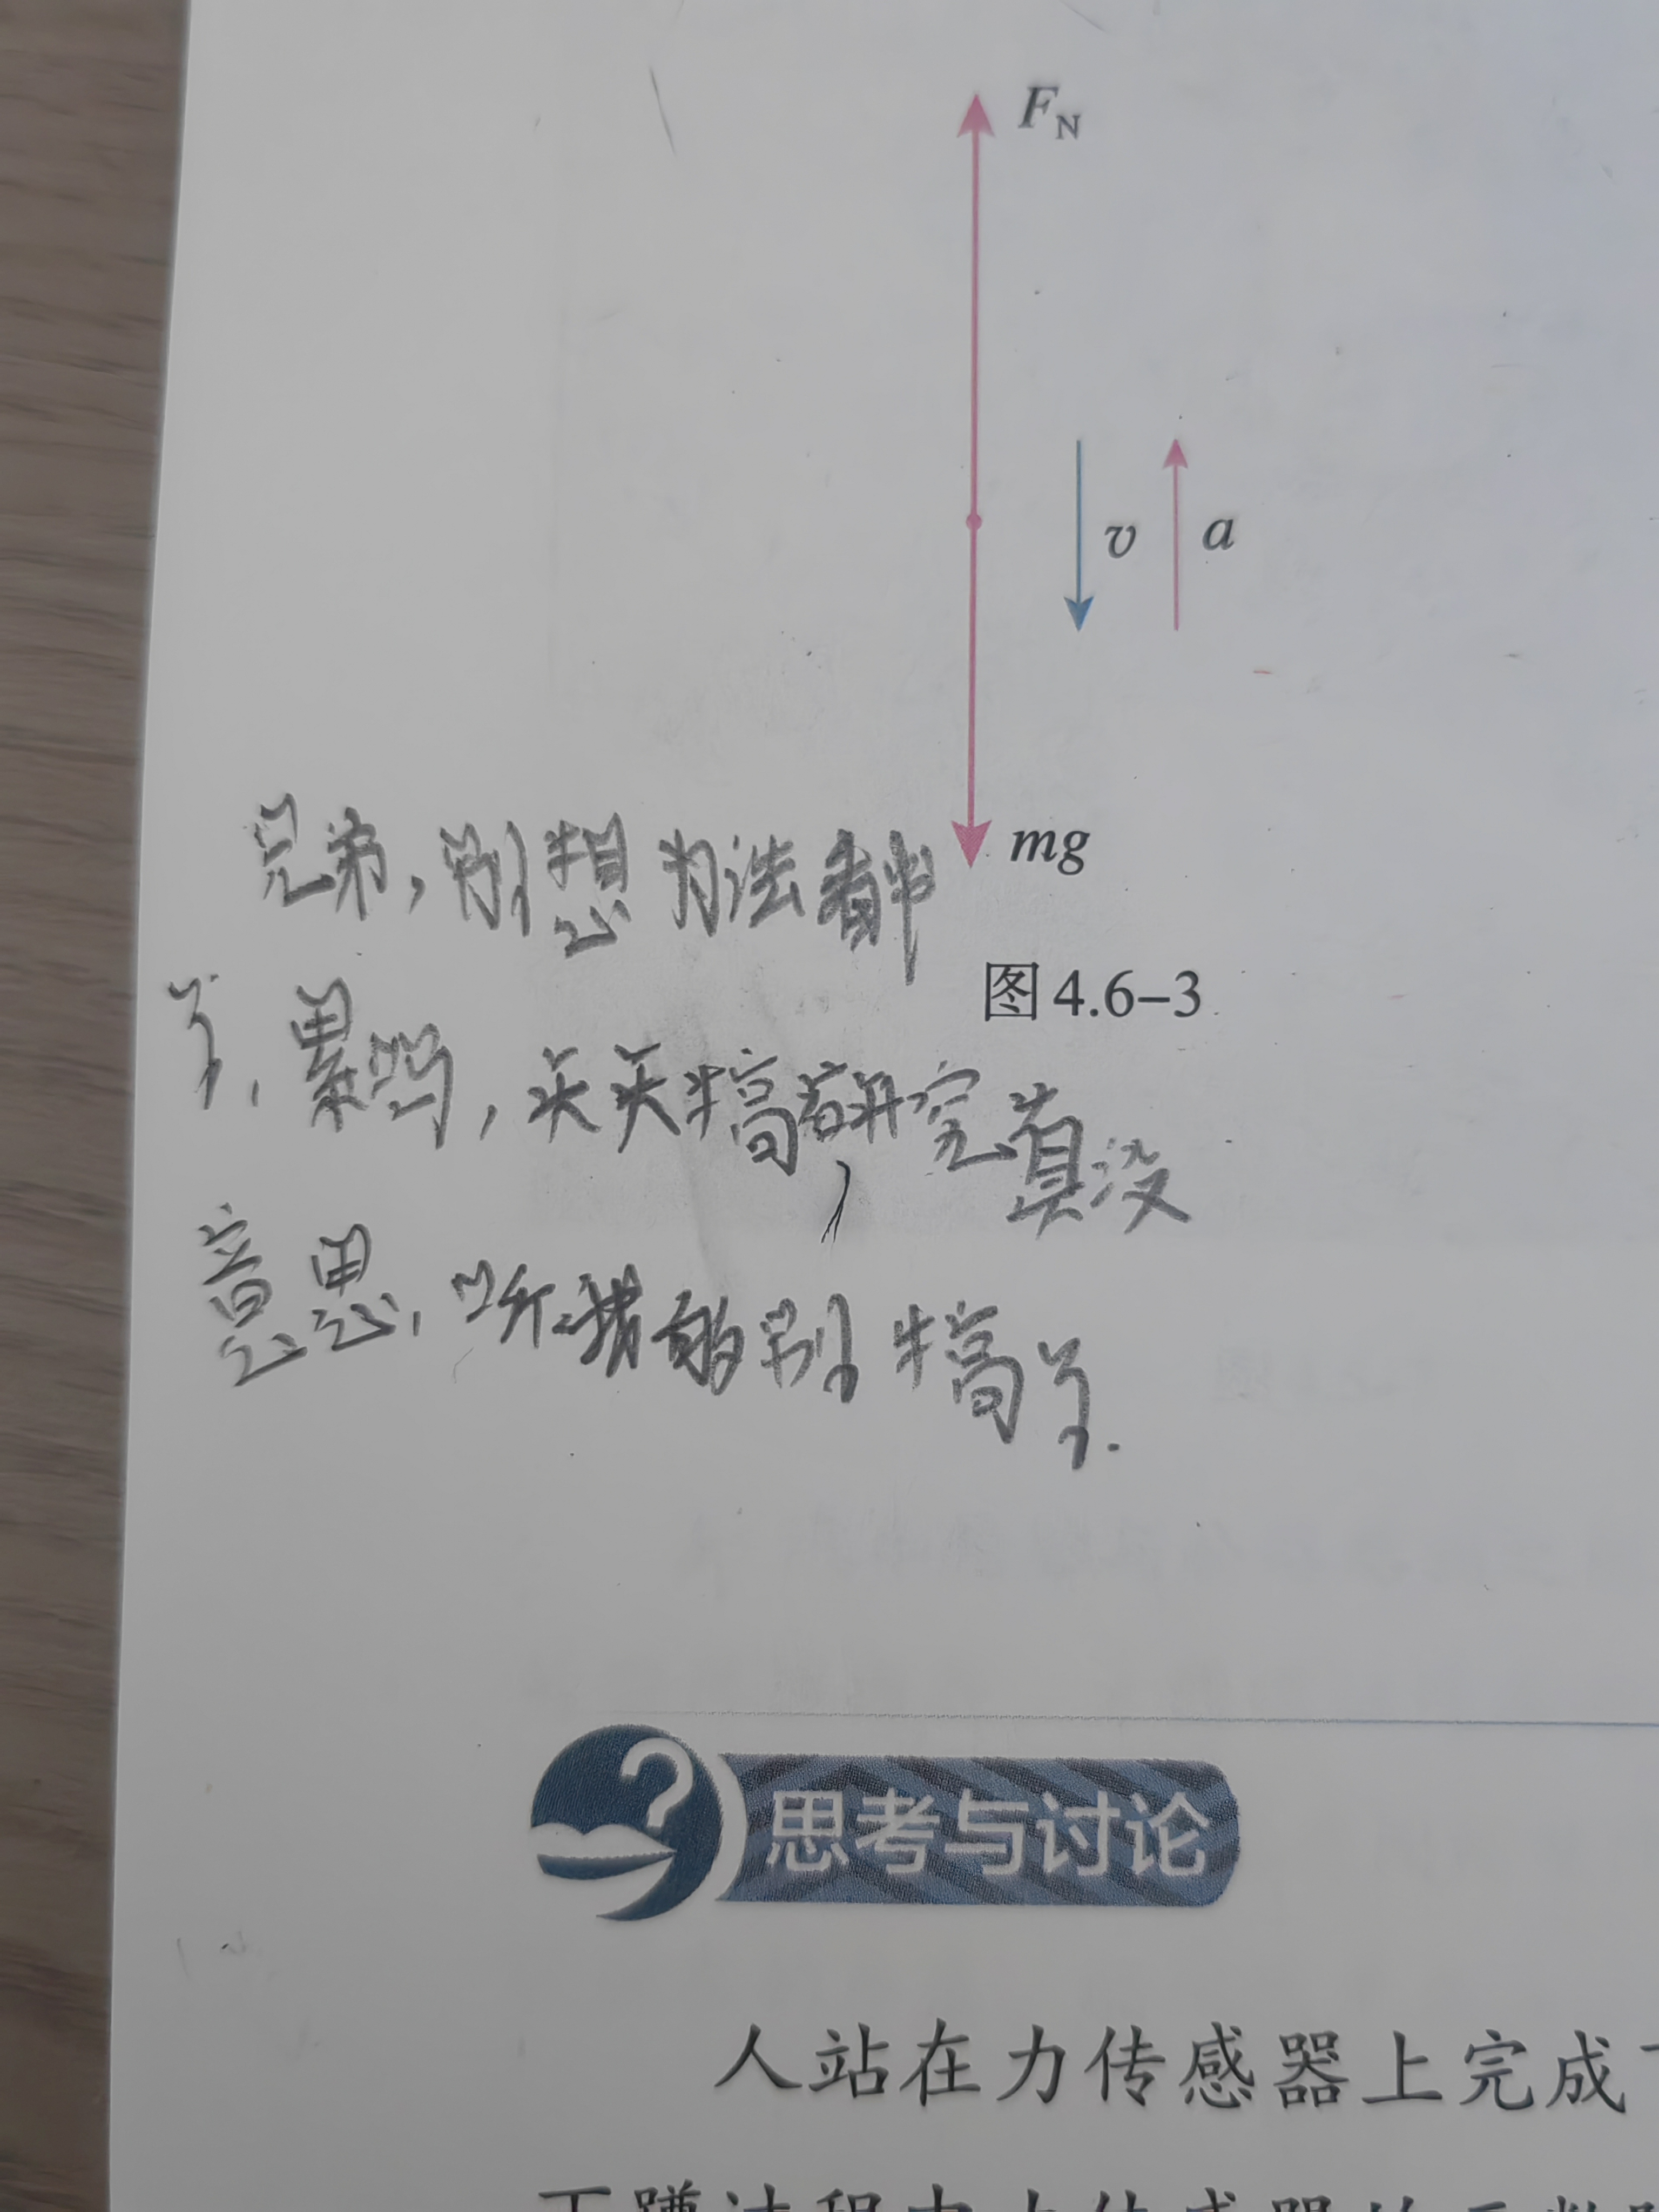 F_N
v a
mg
图4.6-3
兄弟,别想办法都
了,累吗,天天搞研究真没
意思,听我的别搞了.
思考与讨论
人站在力传感器上完成下